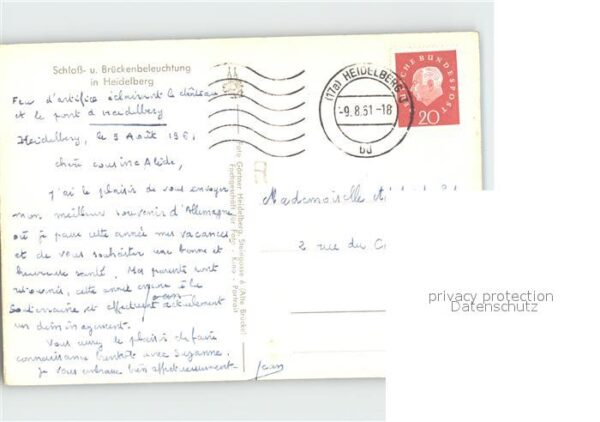 Schloß- u. Brückenbeleuchtung
in Heidelberg
Feu d'artifice éclairant le château
et le pont à Heidelberg
Heidelberg, le 9 Août 1961
chère cousine Alide,
J'ai le plaisir de vous envoyer
mon meilleur souvenir d'Allemagne
où je passe cette année mes vacances
et de vous souhaiter une bonne et
heureuse santé. Mes parents sont
retournés, cette année encore à la
Souterraine et effectuent actuellement
un déménagement.
Vous aurez le plaisir de faire
connaissance bientôt avec Suzanne.
Je vous embrasse bien affectueusement
Jean
Foto Gärtner Heidelberg, Steingasse 6 (Alte Brücke)
Fachgeschäft für Foto - Kino - Portrait
(17a) HEIDELBERG
-9.8.61-18
bd
DEUTSCHE BUNDESPOST
20
Mademoiselle
2 rue du
privacy protection
Datenschutz